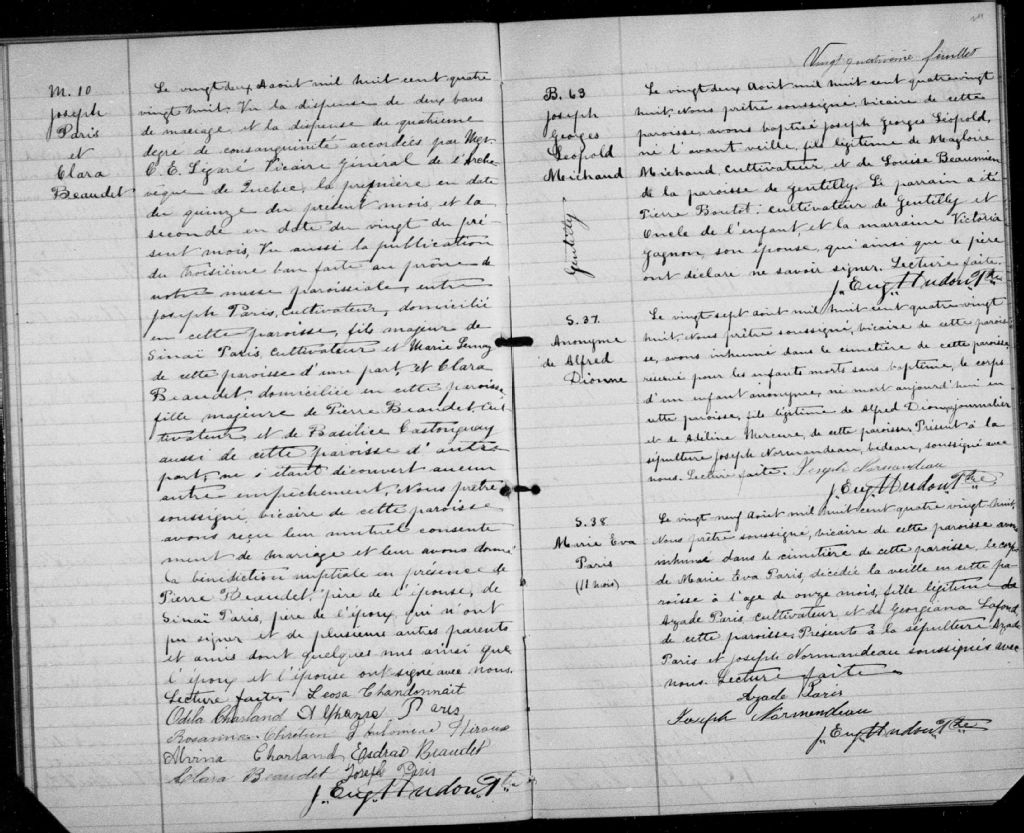 M. 10
Joseph
Paris
et
Clara
Beaudet
Le vingt deux Aaout mil huit cent quatre
vingt huit. Vu la dispense de deux bans
de mariage et la dispense du quatrième
degré de consanguinité accordées par Mgr.
C. E. Légaré Vicaire Général de l'Arche-
vêque de Québec, la première en date
du quinze du présent mois, et la
seconde en date du vingt du pré-
sent mois, Vu aussi la publication
du troisième ban faite au prône de
notre messe paroissiale, entre
Joseph Paris, cultivateur, domicilié
en cette paroisse, fils majeur de
Sinaï Paris, cultivateur et Marie Lemay
de cette paroisse d'une part, et Clara
Beaudet, domiciliée en cette paroisse
fille majeure de Pierre Beaudet, Cul-
tivateur, et de Basilice Castonguay
aussi de cette paroisse d'autre
part, ne s'étant découvert aucun
autre empêchement, Nous prêtre
soussigné, vicaire de cette paroisse
avons reçu leur mutuel consente
ment de mariage et leur avons donné
la bénédiction nuptiale en présence de
Pierre Beaudet, père de l'épouse, de
Sinaï Paris, père de l'époux, qui n'ont
pu signer et de plusieurs autres parents
et amis dont quelques uns ainsi que
l'époux et l'épouse ont signé avec nous.
Lecture faite. Leosa Chandonnait
Odila Charland Alphonse Paris
Rosanna Chrétien Antoinine Héroux
Alvina Charland Esdras Beaudet
Clara Beaudet Joseph Paris
J. Eug. Hudon Ptre
Vingt quatrième feuillet
B. 63
Joseph
Georges
Léopold
Michaud
Gentilly
Le vingt deux Août mil huit cent quatre vingt
huit, Nous prêtre soussigné, vicaire de cette
paroisse, avons baptisé Joseph Georges Léopold,
né l'avant veille, fils légitime de Magloire
Michaud, cultivateur, et de Louise Beaumier
de la paroisse de Gentilly. Le parrain a été
Pierre Boutot, cultivateur de Gentilly et
Oncle de l'enfant, et la marraine Victoria
Gagnon, son épouse, qui ainsi que le père
ont déclaré ne savoir signer. Lecture faite.
J. Eug. Hudon Ptre
S. 37.
Anonyme
de Alfred
Dionne
Le vingt sept août mil huit cent quatre vingt
huit, Nous prêtre soussigné, vicaire de cette parois-
se, avons inhumé dans le cimetière de cette paroisse
réservé pour les enfants morts sans baptême, le corps
d'un enfant anonyme, né mort aujourd'hui en
cette paroisse, fils légitime de Alfred Dionne, journalier
et de Adéline Mercure, de cette paroisse. Présent à la
sépulture Joseph Normandeau, bedeau, soussigné avec
nous. Lecture faite. Joseph Normandeau
J. Eug. Hudon Ptre
S. 38
Marie Eva
Paris
(11 mois)
Le vingt neuf Août mil huit cent quatre vingt huit,
Nous prêtre soussigné, vicaire de cette paroisse avons
inhumé dans le cimetière de cette paroisse, le corps
de Marie Eva Paris, décédée la veille en cette pa-
roisse à l'age de onze mois, fille légitime de
Azade Paris, cultivateur, et de Georgiana Lafond
de cette paroisse. Présents à la sépulture Azade
Paris et Joseph Normandeau soussignés avec
nous. Lecture faite
Azade Paris
Joseph Normendeau
J. Eug. Hudon Ptre